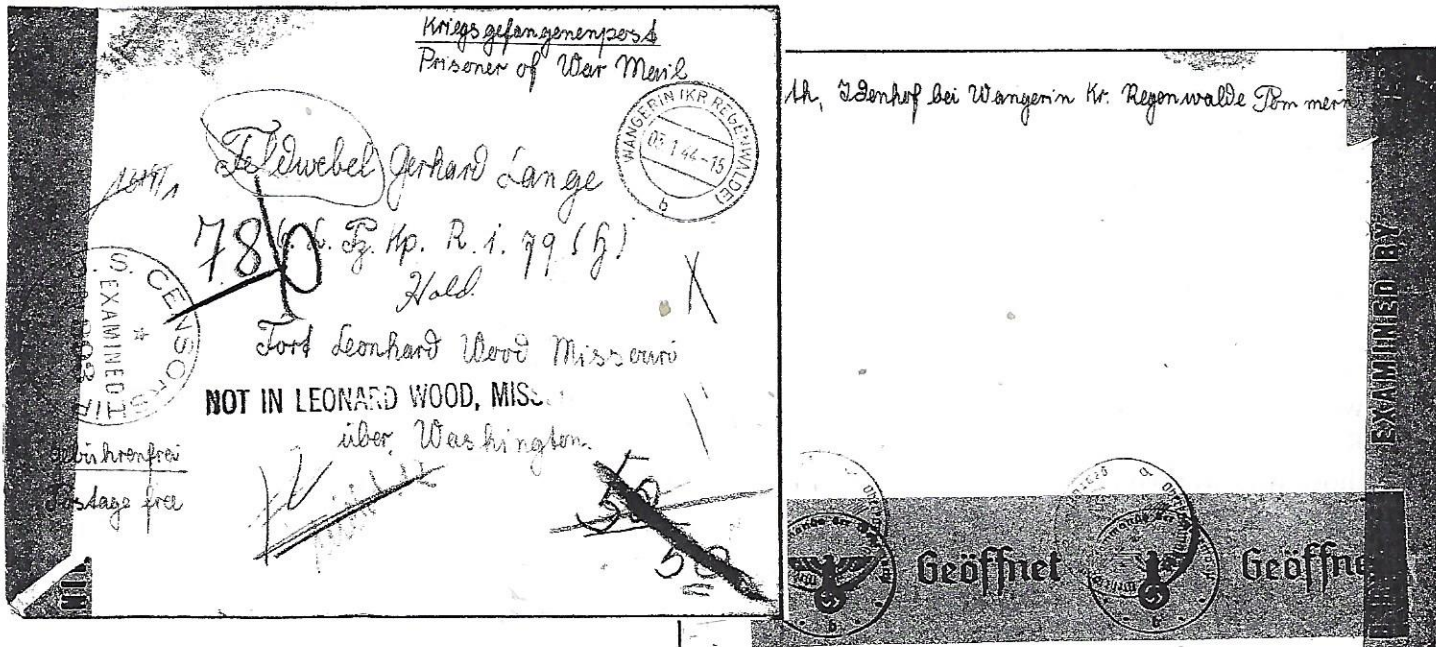 Kriegsgefangenenpost
Prisoner of War Mail
WANGERIN (KR REGENWALDE)
03.1.44-15
b
Feldwebel Gerhard Lange
780
Pz. Kp. R. i. 79 (H)
Fort Leonhard Wood Missouri
NOT IN LEONARD WOOD, MISS
über Washington.
U. S. CENSORSHIP
EXAMINED
Gebührenfrei
Postage free
50
50
th, Idenhof bei Wangerin Kr. Regenwalde Pommern
EXAMINED BY
Geöffnet
Geöffn
b